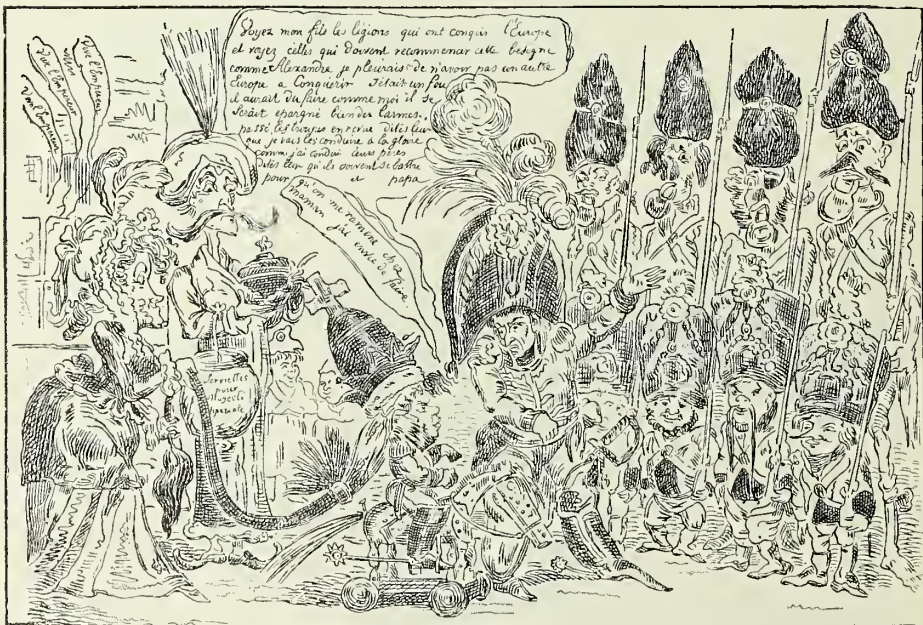 Vive l'Empereur
Vive l'Empereur
Vive l'Empereur
Voyez mon fils les légions qui ont conquis l'Europe
et voyez celles qui doivent recommencer cette besogne
comme Alexandre je pleurais de n'avoir pas un autre
Europe a Conquérir s'était un fou
il aurait du faire comme moi il se
serait epargné bien des larmes.
passé les troupes en revue dites leur
que je vais les conduire a la gloire
comme j'ai condui leurs pères
dites leur qu'ils doivent se battre
pour et papa
qu'on me ramene chez
maman j'ai envie de faire
Serviettes
pour
Majesté
Imperiale